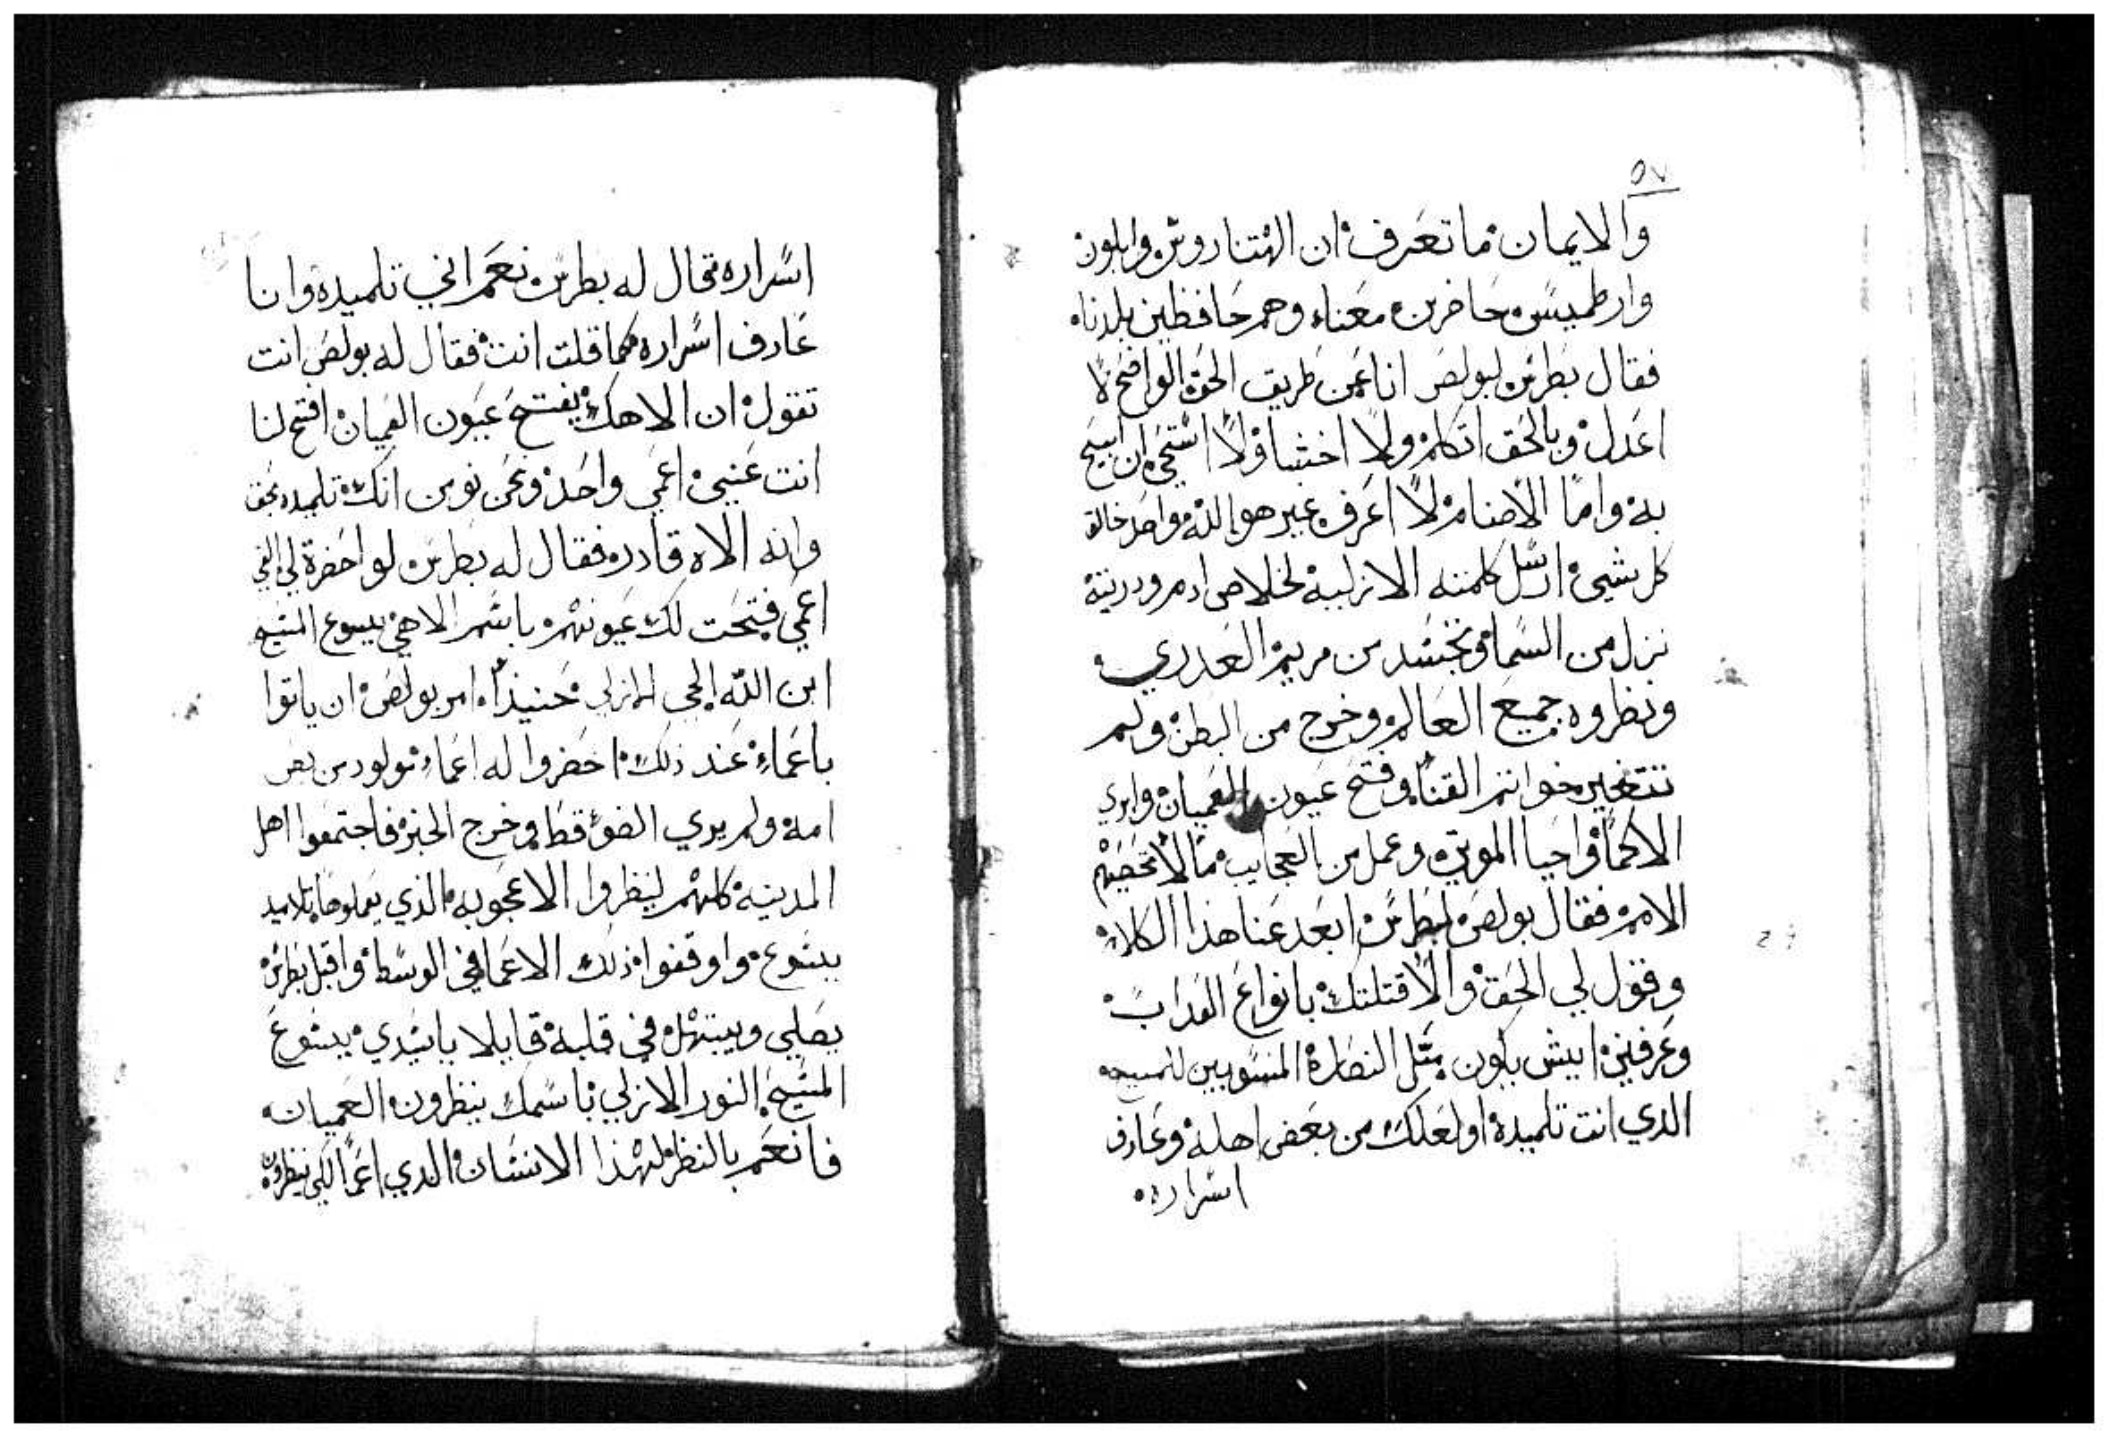 ٥٧
والايمان ما تعرف ان الهتنا روس وابلون
وارطميس حاضرين معنا وهم حافظين بلدنا
فقال بطرس لبولص انا عن طريق الحق الواضح لا
اعدل وبالحق اتكلم ولا اخشا ولا استحي ان اسبح
به واما الاصنام لا اعرف غير هو الله واحد خالق
كل شيي ارسل كلمته الازلية لخلاص ادم ودريته
نزل من السما وتجسد من مريم العدري
ونظروه جميع العالم وخرج من البطن ولم
تتغير خواتم القنا وفتح عيون العميان وابري
الاكما واحيا الموتي وعمل من العجايب مما لا تحصيهم
الامم فقال بولص لبطرس ابعد عنا هذا الكلام
وقول لي الحق والا قتلتك بانواع العداب
وعرفني ايش يكون مثل النصارة المنسوبين للمسيح
الدي انت تلميده او لعلك من بعض اهله وعارف
اسراره
اسراره فقال له بطرس نعم اني تلميده وانا
عارف اسراره كما قلت انت فقال له بولص انت
تقول ان الاهك يفتح عيون العميان افتح لنا
انت عنيي اعمي واحد ونحن نومن انك تلميده بحق
وانه الاه قادر فقال له بطرس لو احضرة لي الفي
اعمي فتحت لك عيونهم باسم الاهي يسوع المسيح
ابن الله الحي الازلي حنيذا امر بولص ان ياتوا
باعماء عند ذلك احضروا له اعماء مولود من بطن
امه ولم يري الضوء قط وخرج الخبر فاجتمعوا اهل
المدينه كلهم لينظروا الاعجوبه الذي يعملوها تلاميد
يسوع واوقفوا ذلك الاعما في الوسط واقبل بطرس
يصلي ويبتهل في قلبه قايلا يا سيدي يسوع
المسيح النور الازلي باسمك ينظرون العميان
فانعم بالنظر لهذا الانسان الدي اعما لكي ينظرون